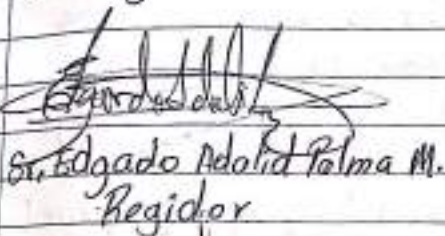 Sr. Edgado Adalid Palma M.
Regidor